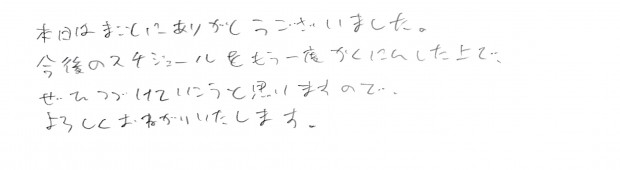 本日はまことにありがとうございました。
今後のスケジュールをもう一度かくにんした上で、
ぜひつづけていこうと思いますので、
よろしくおねがいいたします。